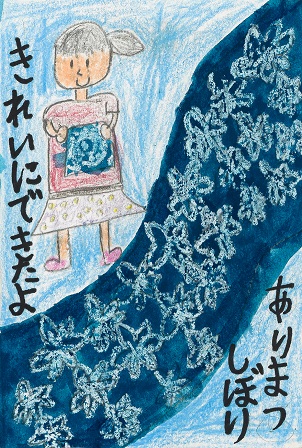 きれいにできたよ
ありまつ
しぼり